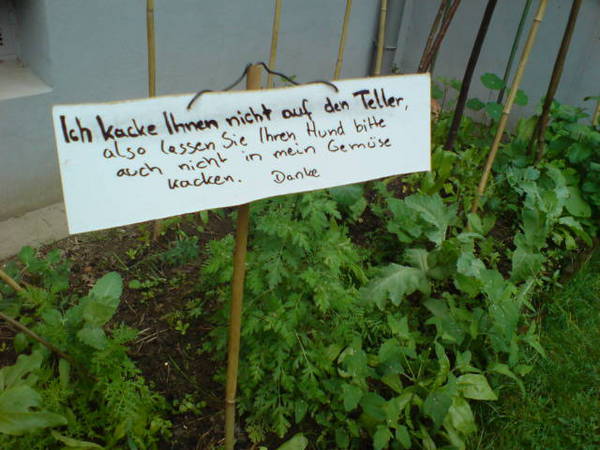 Ich kacke Ihnen nicht auf den Teller,
also lassen Sie Ihren Hund bitte
auch nicht in mein Gemüse
kacken. Danke